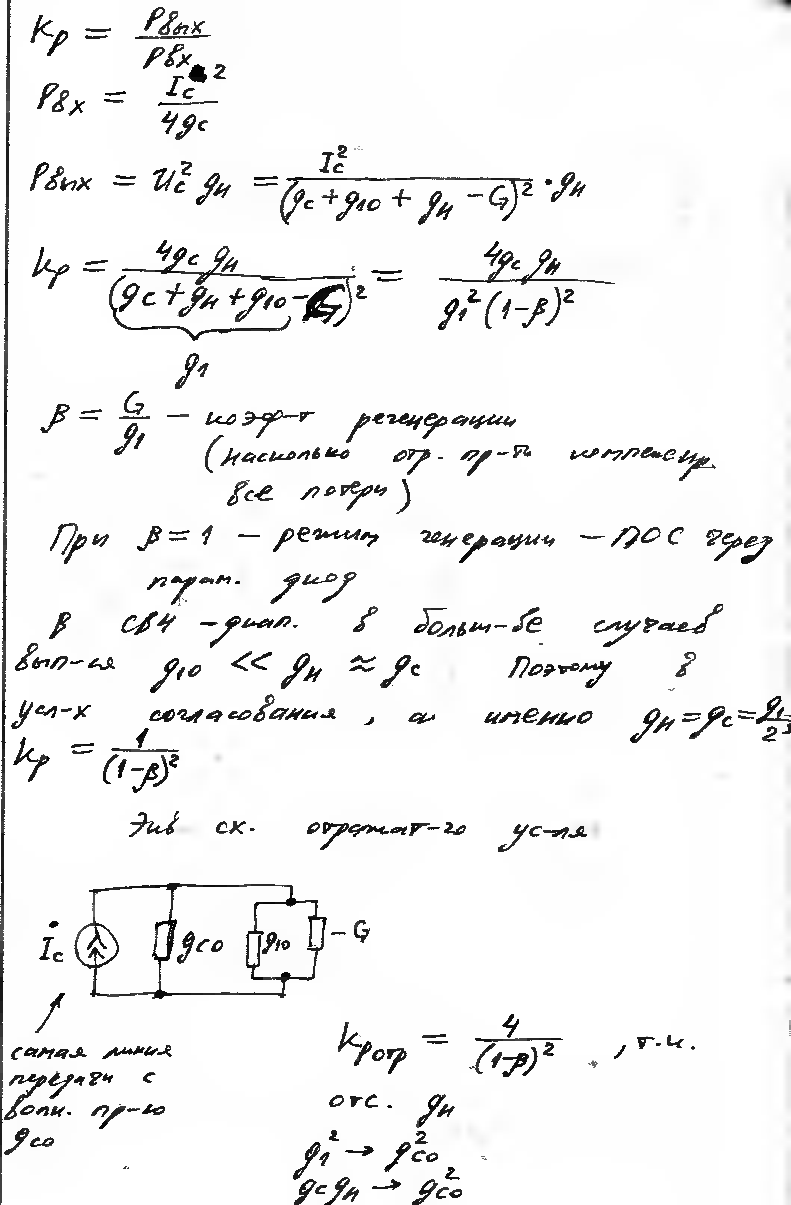 Kр = Pвых / Pвх
Pвх = Iс² / 4gс
Pвых = Uс² gн = Iс² / (gс + g10 + gн − G)² · gн
Kр = 4gс gн / (gс + gн + g10 − G)² = 4gс gн / g1² (1−β)²
g1
β = G / g1 — коэф-т регенерации
(насколько отр. пр-ть компенсир.
все потери)
При β = 1 — режим генерации — ПОС через
парам. диод
В СВЧ - диап. в больш-ве случаев
вып-ся g10 << gн ≈ gс Поэтому в
усл-х согласования, а именно gн = gс = g1/2
Kр = 1 / (1−β)²
Экв сх. отражат-го ус-ля
İс gсо g10 −G
самая линия
передачи с
волн. пр-ю
gсо
Kр отр = 4 / (1−β)² , т.к.
отс. gн
g1² → gсо²
gс gн → gсо²